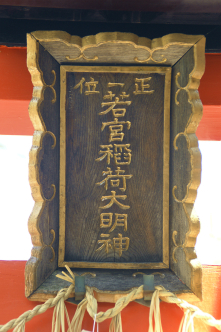 正一位
若宮稲荷大明神